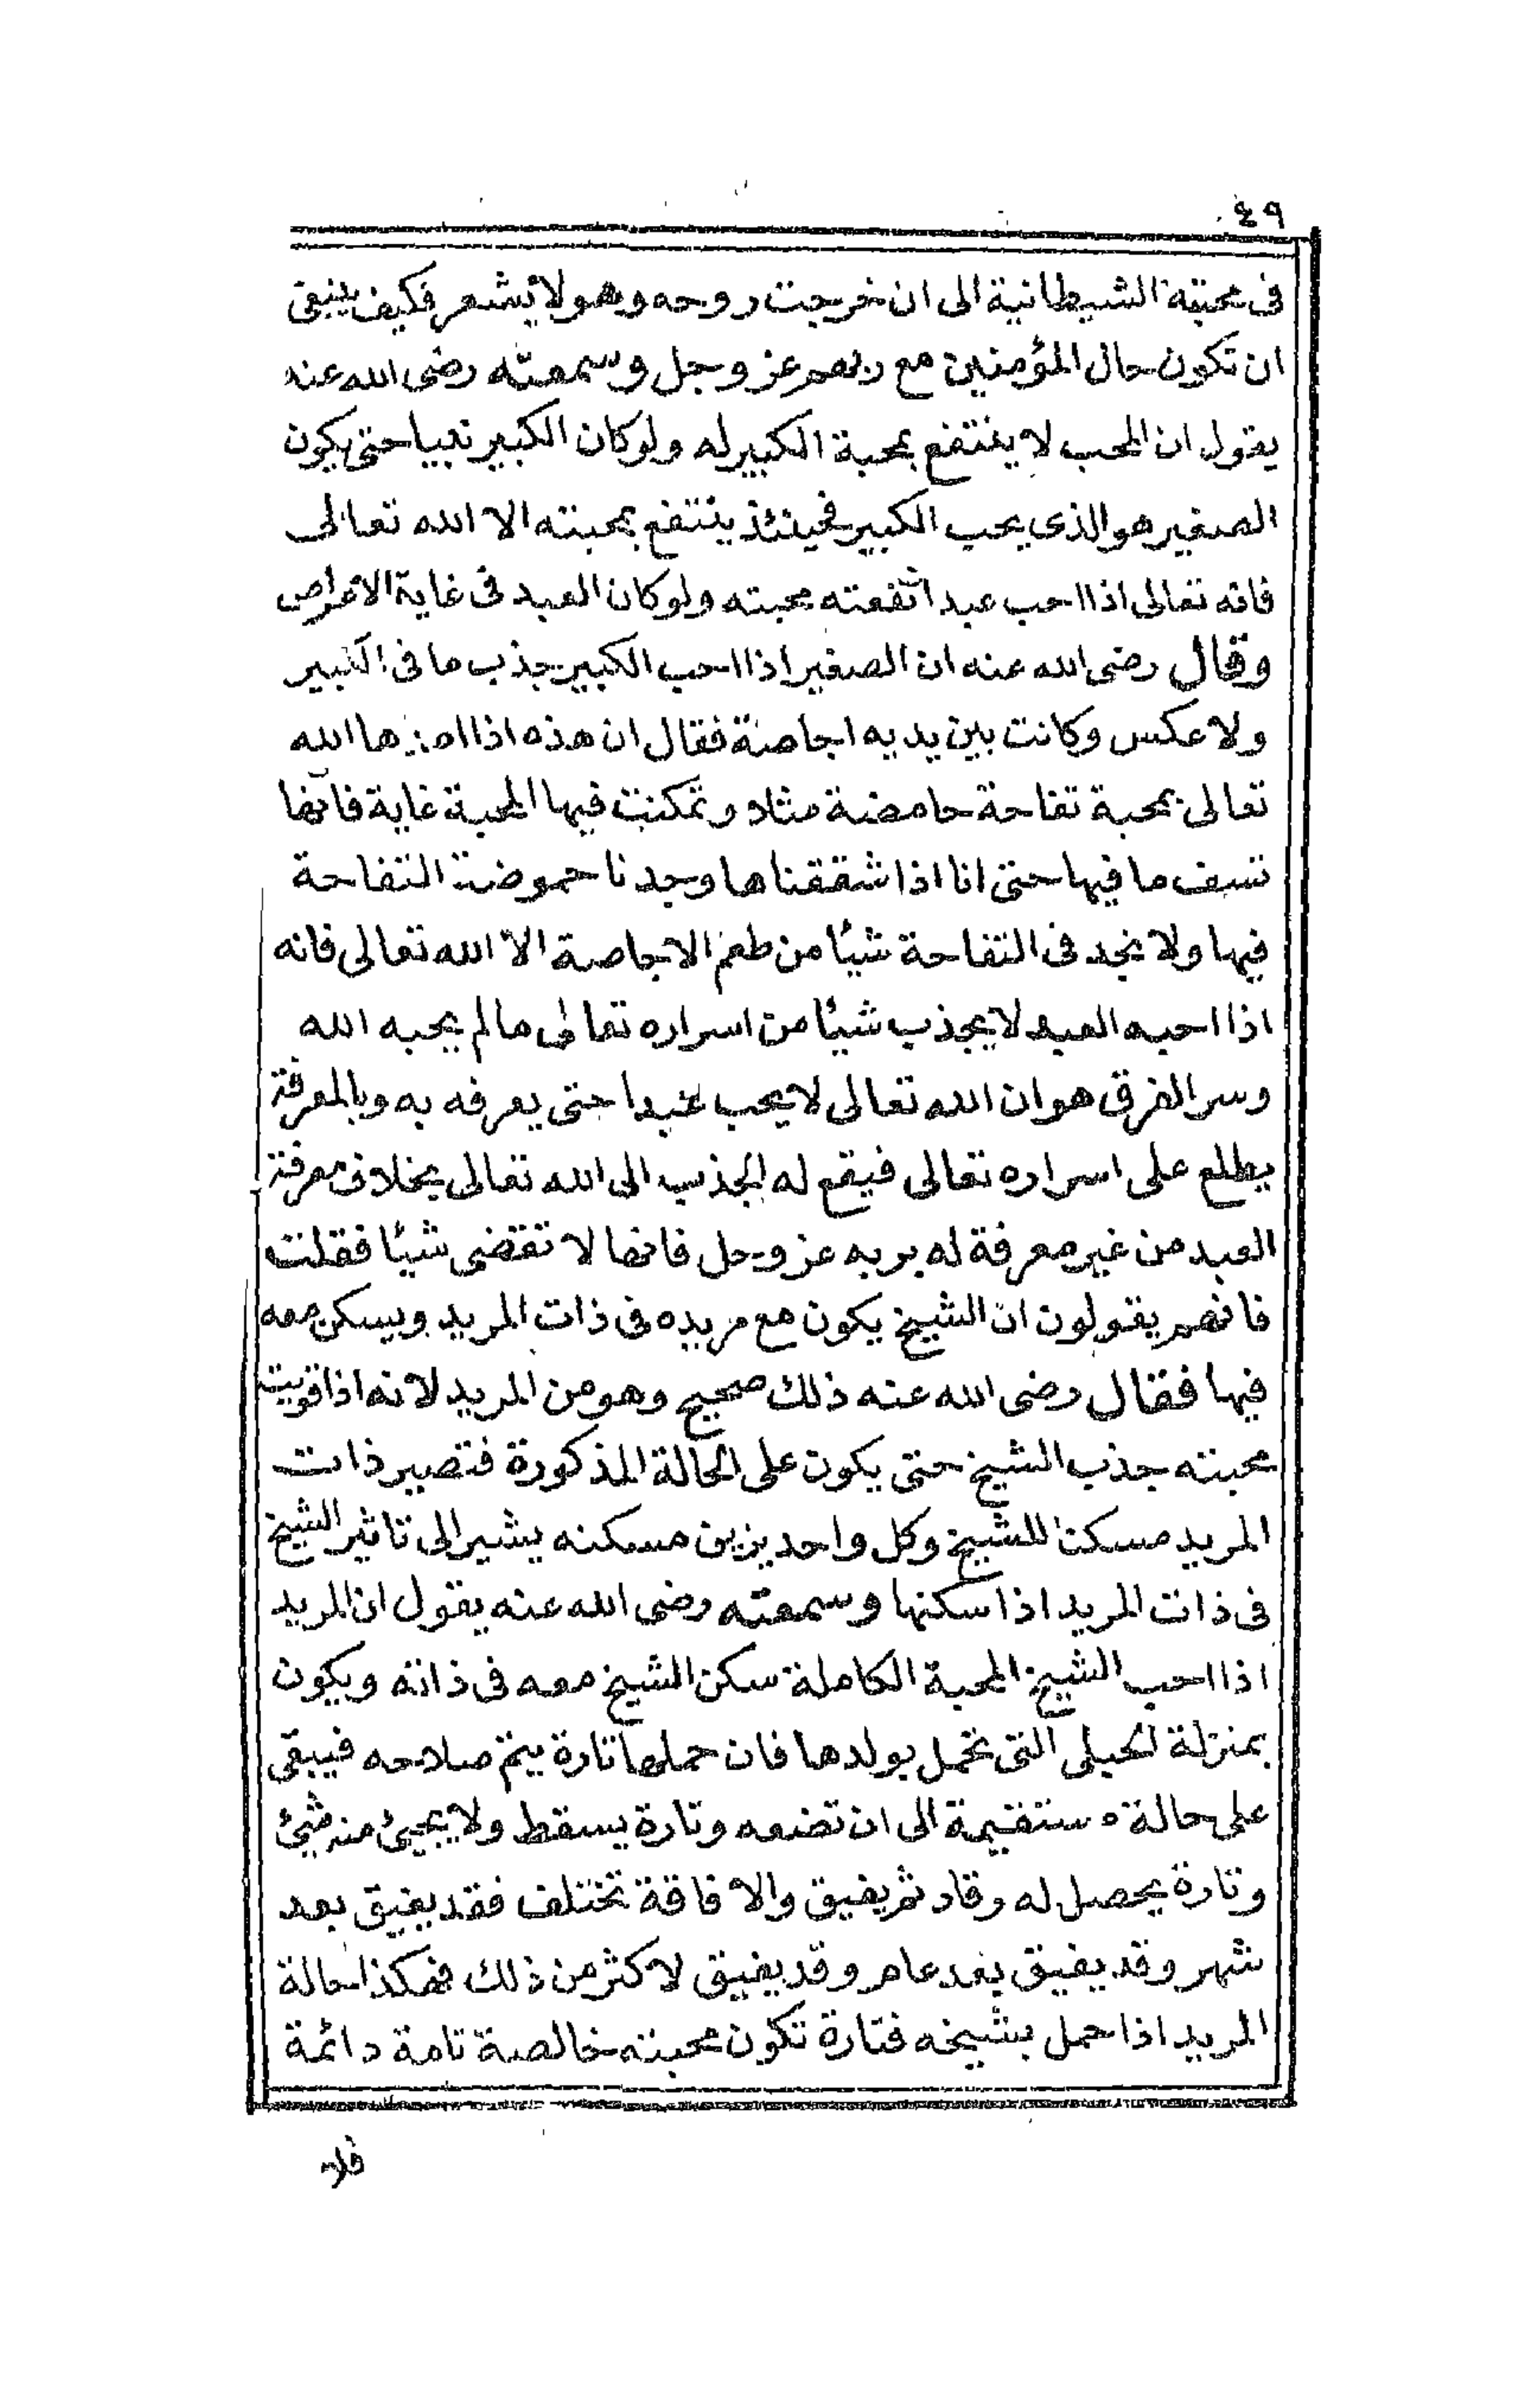 ٤٩
فى محبته الشيطانية الى ان خرجت روحه وهو لا يشعر فكيف ينبغى
ان تكون حال المؤمنين مع ربهم عز وجل وسمعته رضى الله عنه
يقول ان المحب لا ينتفع بمحبة الكبير له ولو كان الكبير نبيا حتى يكون
الصغير هو الذى يحب الكبير فحينئذ ينتفع بمحبته الا الله تعالى
فانه تعالى اذا احب عبدا نفعته محبته ولو كان العبد فى غاية الاعراض
وقال رضى الله عنه ان الصغير اذا احب الكبير جذب ما فى الكبير
ولا عكس وكانت بين يديه اجاصة فقال ان هذه اذا امدها الله
تعالى بمحبة تفاحة حامضة مثلا وتمكنت فيها المحبة غاية فانها
تسف ما فيها حتى انا اذا شققناها وجدنا حموضة التفاحة
فيها ولا نجد فى التفاحة شيئا من طعم الاجاصة الا الله تعالى فانه
اذا احبه العبد لا يجذب شيئا من اسراره تعالى ما لم يحبه الله
وسر الفرق هو ان الله تعالى لا يحب عبدا حتى يعرفه به وبالمعرفة
يطلع على اسراره تعالى فيقع له الجذب الى الله تعالى بخلاف معرفة
العبد من غير معرفة له بربه عز وجل فانها لا تقتضى شيئا فقلت
فانهم يقولون ان الشيخ يكون مع مريده فى ذات المريد ويسكن معه
فيها فقال رضى الله عنه ذلك صحيح وهو من المريد لانه اذا قويت
محبته جذب الشيخ حتى يكون على الحالة المذكورة فتصير ذات
المريد مسكنا للشيخ وكل واحد يزين مسكنه يشير الى تاثير الشيخ
فى ذات المريد اذا سكنها وسمعته رضى الله عنه يقول ان المريد
اذا احب الشيخ المحبة الكاملة سكن الشيخ معه فى ذاته ويكون
بمنزلة الحبلى التى تحمل بولدها فان حملها تارة يتم صلاحه فيبقى
على حالة مستقيمة الى ان تضعه وتارة يسقط ولا يجيئ منه شيئ
وتارة يحصل له رقاد ثم يفيق والافاقة تختلف فقد يفيق بعد
شهر وقد يفيق بعد عام وقد يفيق لاكثر من ذلك فهكذا حالة
المريد اذا حمل بشيخه فتارة تكون محبته خالصة تامة دائمة
فلا